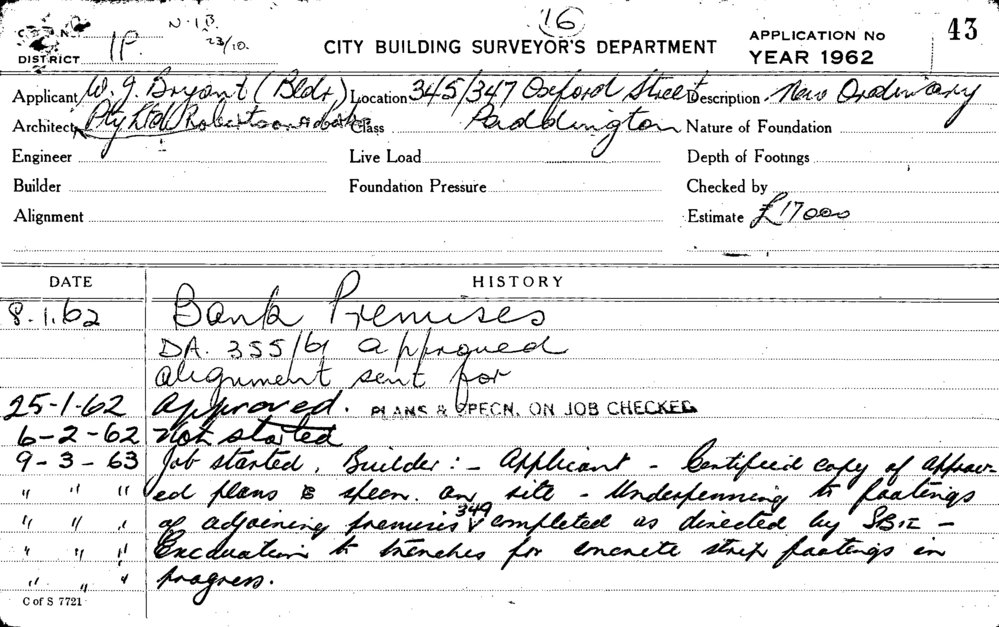 16
N.I.B.
23/10.
DISTRICT 1P.
CITY BUILDING SURVEYOR'S DEPARTMENT
APPLICATION No 43
YEAR 1962
Applicant W. J. Bryant (Bldr.) Location 345/347 Oxford Street Description New Ordinary
Architect Pty Ltd Robertson Class Paddington Nature of Foundation
Engineer Live Load Depth of Footings
Builder Foundation Pressure Checked by
Alignment Estimate £17000
DATE HISTORY
8.1.62 Bank Premises
DA. 355/61 approved
alignment sent for
25-1-62 Approved. PLANS & SPECN. ON JOB CHECKED
6-2-62 Not started
9-3-63 Job started, Builder:- Applicant - Certified copy of approv-
" " " ed plans & specn. on site - Underpinning to footings
" " " of adjoining premises 349 completed as directed by SBI -
" " " Excavation to trenches for concrete strip footings in
" " " progress.
C of S 7721